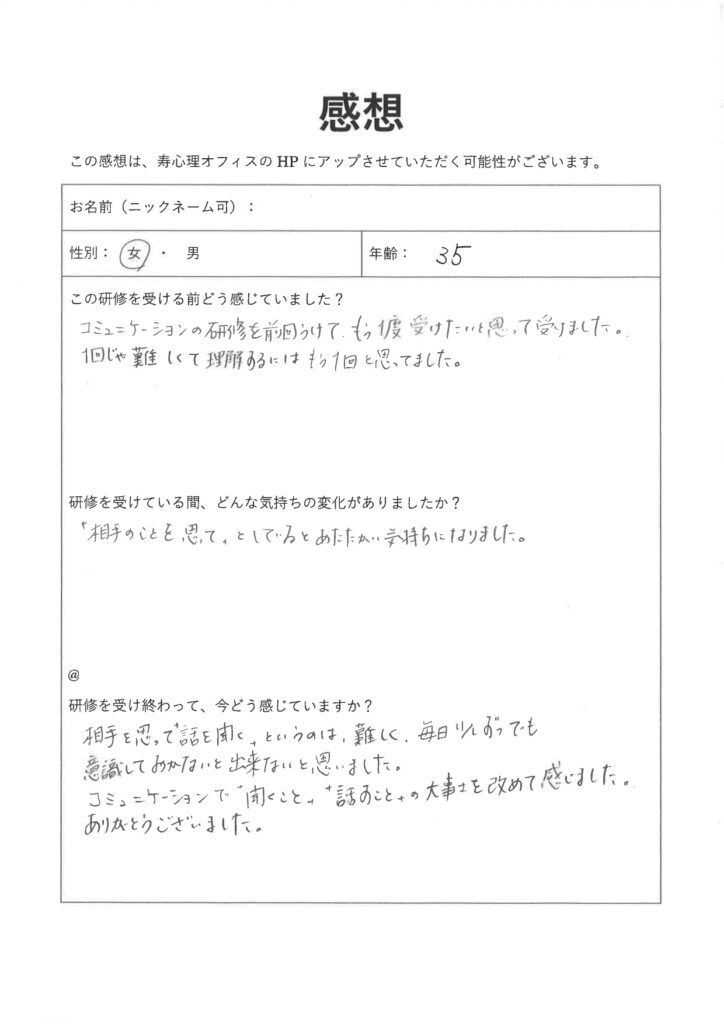 感想
この感想は、寿心理オフィスの HP にアップさせていただく可能性がございます。
お名前（ニックネーム可）：
性別： 女 ・ 男
年齢： 35
この研修を受ける前どう感じていました？
コミュニケーションの研修を前回うけて、もう1度受けたいと思って受けました。
1回じゃ難しくて理解するにはもう1回と思ってました。
研修を受けている間、どんな気持ちの変化がありましたか？
「相手のことを思って」としているとあたたかい気持ちになりました。
@
研修を受け終わって、今どう感じていますか？
相手を思って「話を聞く」というのは、難しく、毎日少しずつでも
意識しておかないと出来ないと思いました。
コミュニケーションで「聞くこと」「話すこと」の大事さを改めて感じました。
ありがとうございました。